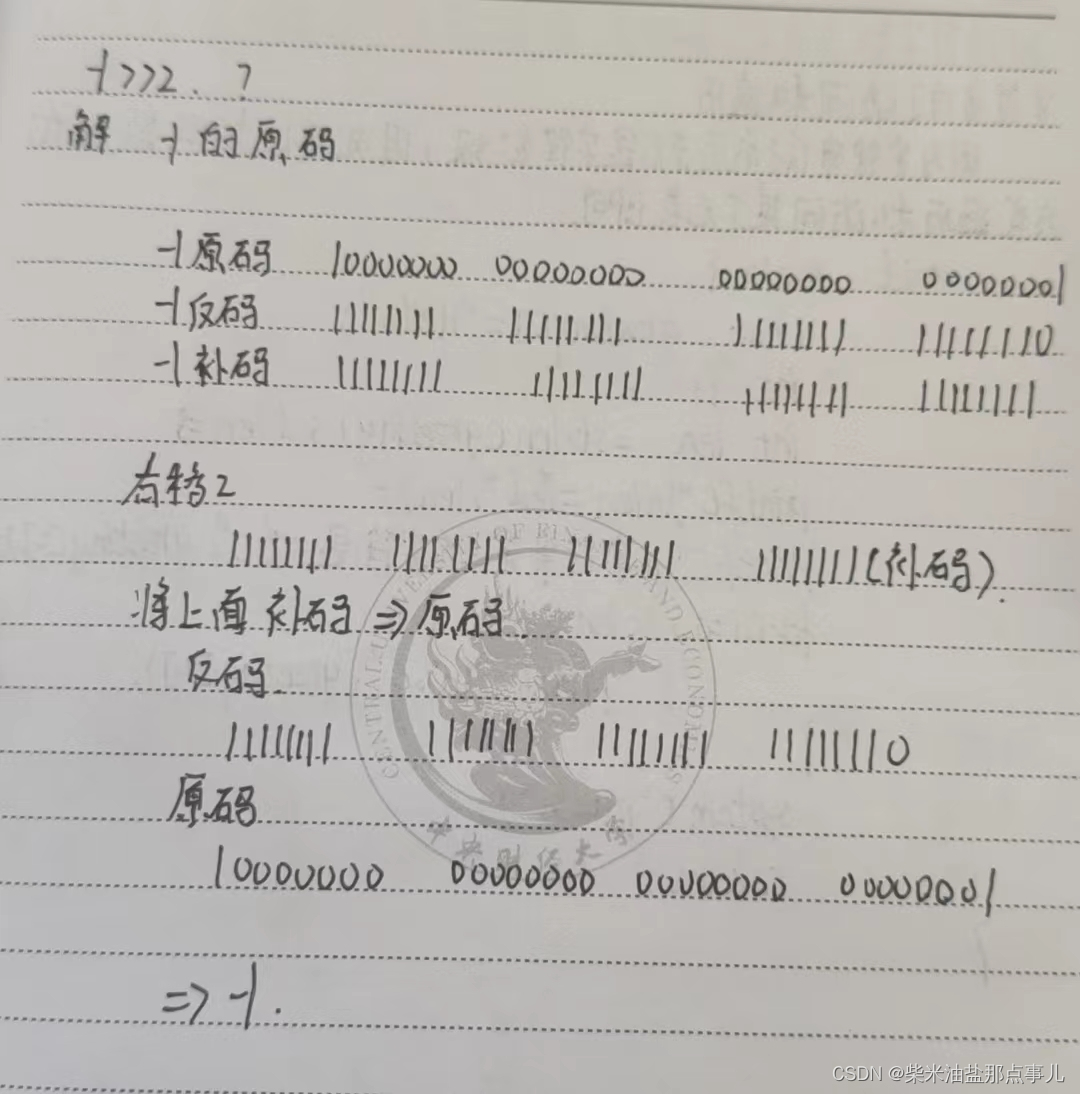 -1>>2. ?
解 -1的原码
-1原码 10000000 00000000 00000000 00000001
-1反码 11111111 11111111 11111111 11111110
-1补码 11111111 11111111 11111111 11111111
右移2
11111111 11111111 11111111 11111111(补码).
将上面补码⇒原码.
反码.
11111111 11111111 11111111 11111110
原码
10000000 00000000 00000000 00000001
⇒ -1.
中央财经大学
CSDN @柴米油盐那点事儿